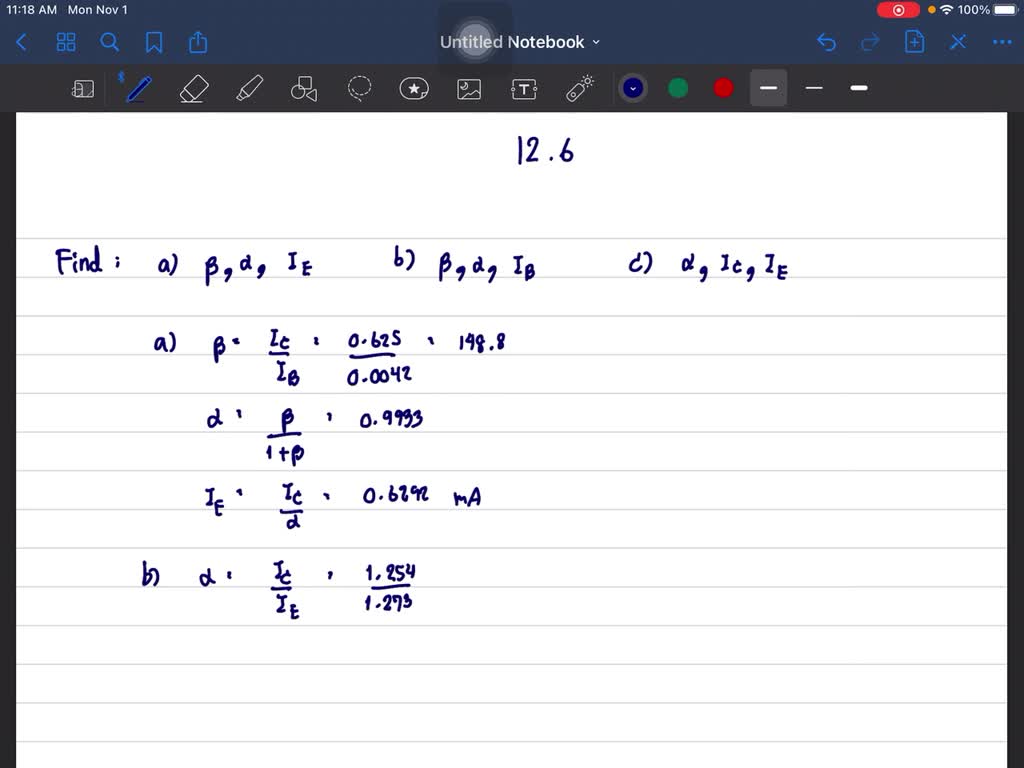 11:18 AM Mon Nov 1 100%
Untitled Notebook
12.6
Find : a) β, α, IE b) β, α, IB c) α, Ic, IE
a) β = Ic/IB = 0.625/0.0042 = 148.8
α = β/1+β = 0.9933
IE = Ic/α = 0.6292 mA
b) α = Ic/IE = 1.254/1.273